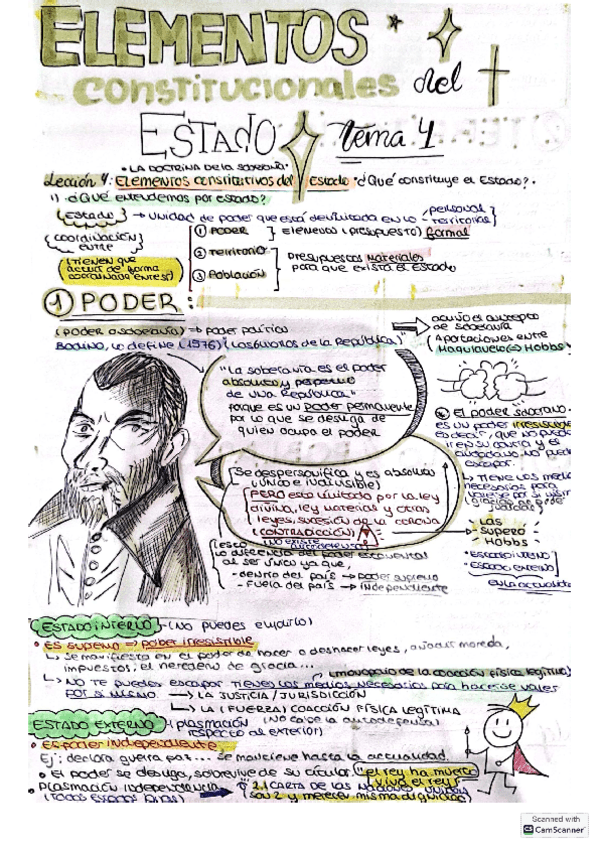 ELEMENTOS
constitucionales del
ESTADO tema 4
• LA DOCTRINA DE LA SOBERANÍA
Lección 4: Elementos constitutivos del Estado • ¿Qué constituye el Estado?
1) ¿Qué entendemos por estado?
{estado} → unidad de poder que está delimitada en lo - personal
- territorial
{coordinación entre}
(TIENEN QUE
actuar de forma
coordinada entre sí)
① PODER ] Elemento (presupuesto) formal
② Territorio
③ Población
Presupuestos materiales
para que exista el Estado
① PODER:
(PODER o soberanía) → poder político
Bodino, lo define (1576) (Los 6 libros de la República)
acuñó el concepto
de soberanía
(Aportaciones entre
Maquiavelo Hobbs
"La soberanía es el poder
absoluto y perpetuo
de una República"
porque es un poder permanente
por lo que se desliga de
quien ocupa el poder
EL poder soberano.
es un poder irresistible
es decir, que no puede
ir en su contra y el
ciudadano no puede
escapar.
↳ TIENE LOS medios
necesarios para
Se despersonifica y es absoluto
(único e indivisible)
PERO esta limitado por la ley
divina, ley natural y otras
leyes, sucesión de la corona
(CONTRADICCIÓN)
LAS
Supero
Hobbs
• Estado interno
• Estado externo
en la actualidad
(esto
lo diferencia del poder
al ser único ya que,
- dentro del país → poder supremo
- fuera del país → independiente
ESTADO INTERNO - (No puedes eludirlo)
• ES supremo → poder irresistible
↳ se manifiesta en el poder de hacer o deshacer leyes, acuñar moneda,
impuestos, el derecho de gracia...
(monopolio de la coacción física legítima)
↳ NO TE puedes escapar TIENE LOS medios necesarios para hacerse valer
POR sí mismo. → LA JUSTICIA / JURISDICCIÓN
↳ LA (FUERZA) COACCIÓN FÍSICA LEGÍTIMA
(No cabe la autodefensa)
ESTADO EXTERNO - (plasmación
respecto al exterior)
• Es poder independiente
Ej: declara guerra paz... se mantiene hasta la actualidad.
• El poder se desliga, sobrevive de su "el rey ha muerto
viva el rey"
• PLASMACIÓN INDEPENDENCIA → 2.1 CARTA DE LAS NACIONES UNIDAS
(TODOS ESTADOS
Scanned with
CamScanner